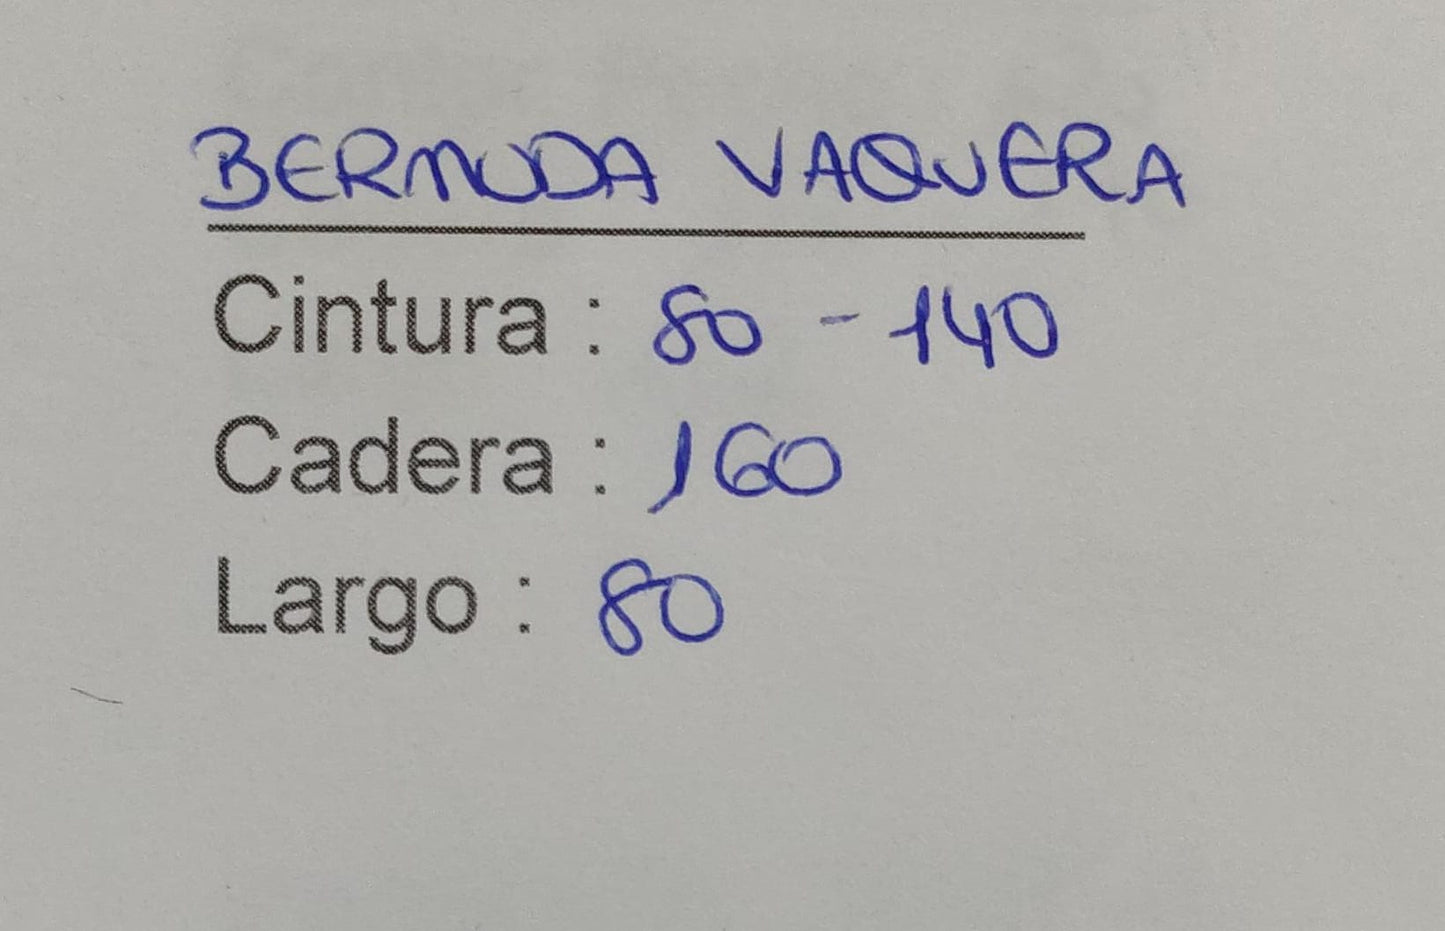 BERMUDA VAQUERA
Cintura : 80 - 140
Cadera : 160
Largo : 80